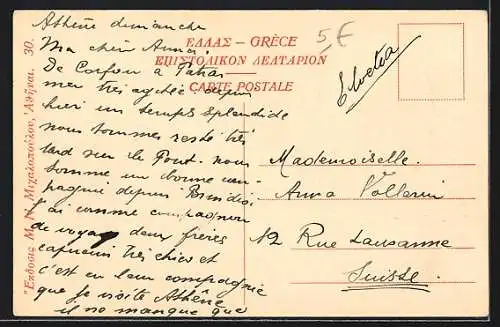 Athène dimanche
Ma chère Anna.
De Corfou à Patras
mer très agitée depuis
hier un temps splendide
nous sommes resté très
tard sur le Pont. nous
somme un bonne com-
pagnie depuis Brindisi
J'ai comme compagnon
de voyage deux frères
capucin très chics et
c'est en leur compagnie
que je visite Athène
il no manque que
ΕΛΛΑΣ – GRÈCE
ΕΠΙΣΤΟΛΙΚΟΝ ΔΕΛΤΑΡΙΟΝ
CARTE POSTALE
5,€
Elvetia
Mademoiselle.
Anna
12 Rue Lausanne
Suisse.
"Εκδοσις Μ. Ν. Μιχαλοπούλου, Ἀθῆναι. 30.